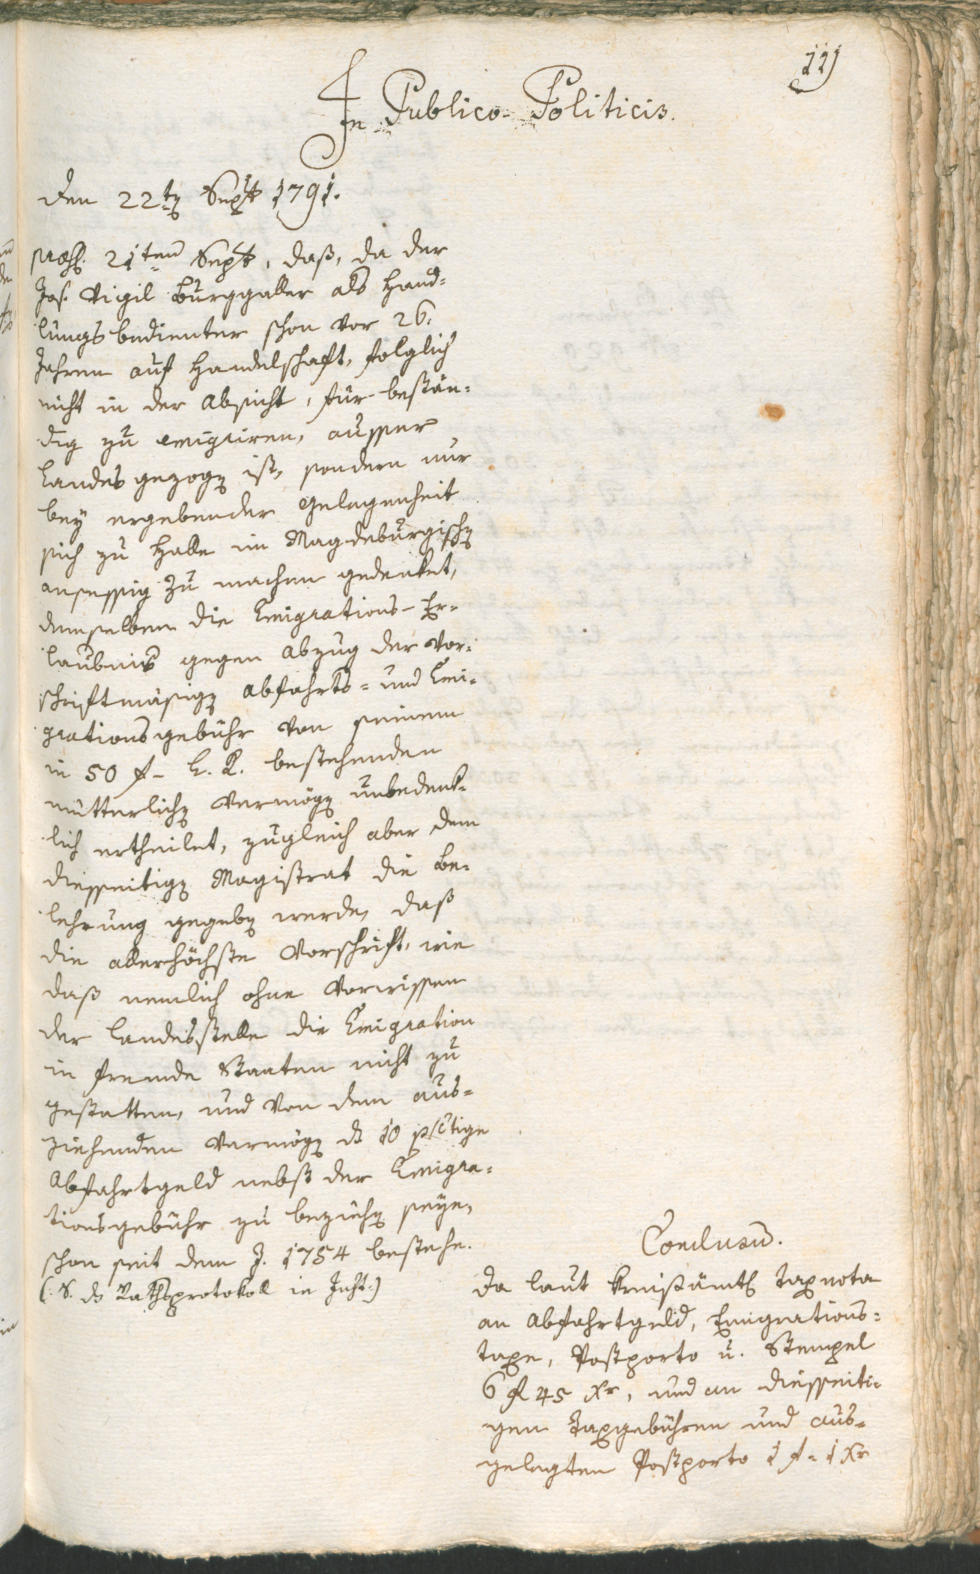 111
In Publico-Politicis.
Den 22tn Sept 1791.
præs. 21ten Sept, daß, da der
Jos. Vigil Burggaller als Hand=
lungsbedienter schon vor 26.
Jahren auf Handelschaft, folglich
nicht in der Absicht, für bestän=
dig zu emigriren, ausser
Landes gezogn ist, sondern nur
bey ergebender Gelegenheit
sich zu Halle im Magdeburgischn
ansessig zu machen gedenket,
demselben die Emigrations-Er=
laubnis gegen Abzug der vor=
schriftmäsign Abfahrts= und Emi=
grationsgebühr von seinem
in 50 f- bestehenden
mütterlichn Vermögn unbedenk=
lich ertheilet, zugleich aber dem
diesseitign Magistrat die Be=
lehrung gegebn werde, daß
die allerhöchste Vorschrift, wie
daß nemlich ohne Vorwissen
der Landesstelle die Emigration
in fremde Staaten nicht zu
gestatten, und von dem aus=
ziehenden Vermögn ds 10 pctige
Abfahrtgeld nebst der Emigra=
tionsgebühr zu beziehn seye,
schon seit dem J. 1784 bestehe.
(: V. ds Rathsprotokoll in Just:)
Conclusum.
Da laut kreisämtl Taxnota
an Abfahrtgeld, Emigrations=
taxe, Postporto u. Stempel
6 f 45 Xr, und an diesseiti=
gen Taxgebühren und aus=
gelegten Postporto 1 f- 1 Xr